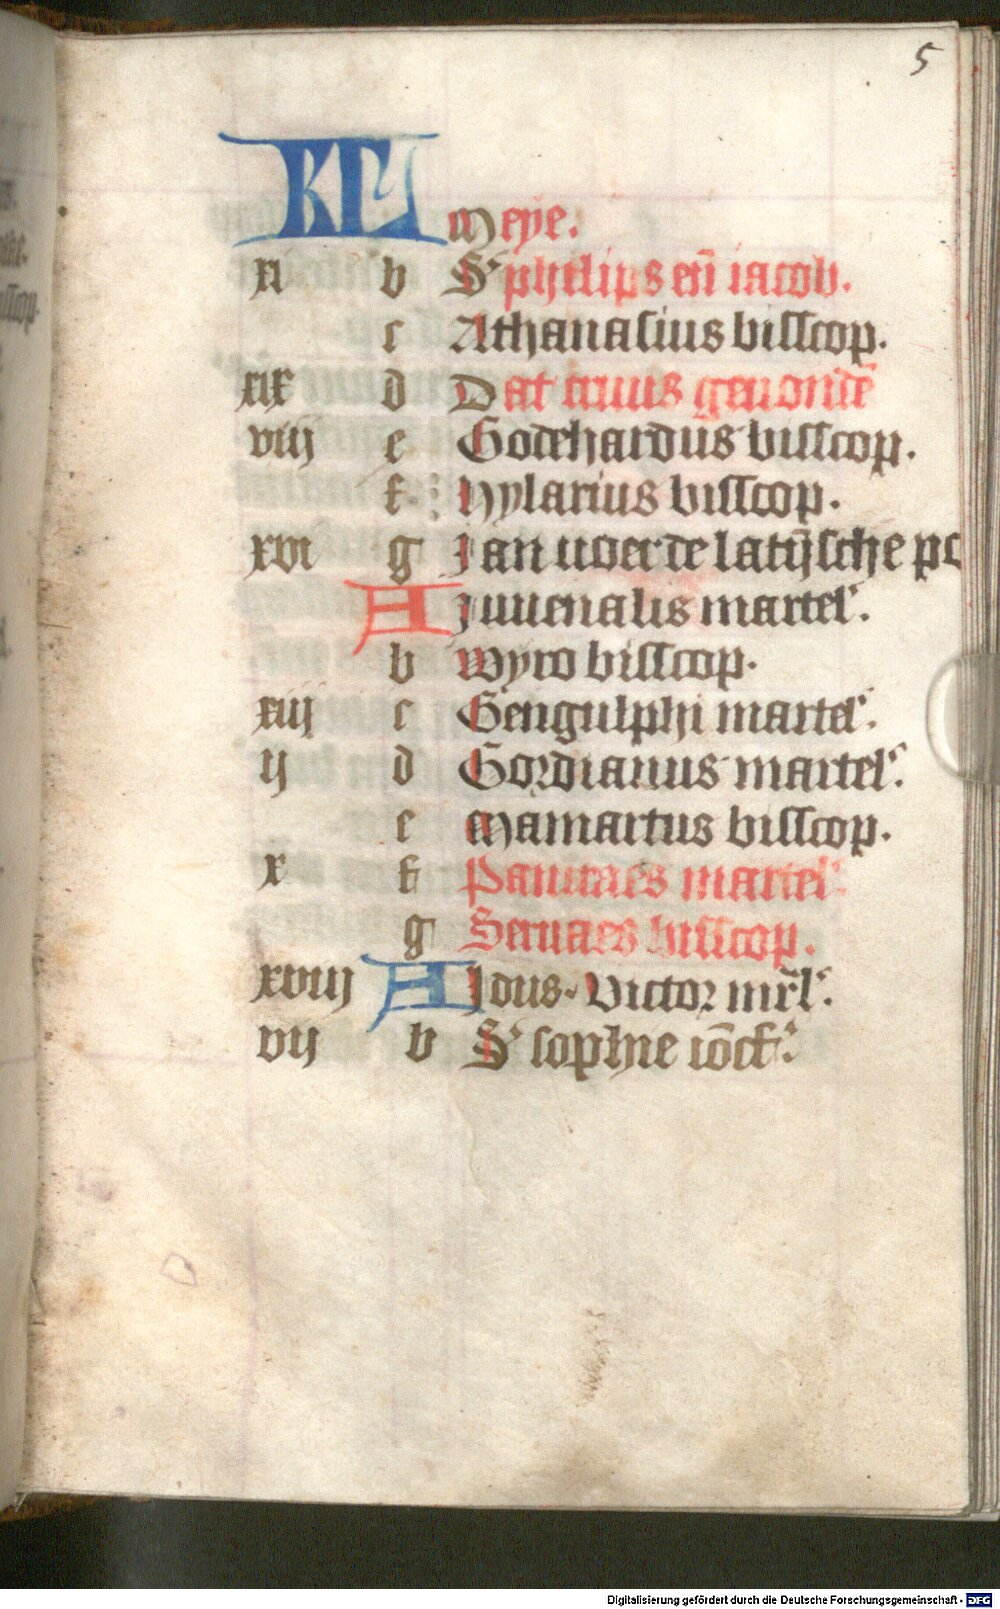 5
KL Meye.
xi b S' philips en̄ iacob.
c Athanasius bisscop.
xix d Dat cruus geuondē
viij e Godehardus bisscop.
f hylarius bisscop.
xvi g Jan voer de latijsche po
A Juuenalis martel'.
b Wyro bisscop.
xiij c Gengulphi martel'.
ij d Gordianus martel'.
e Mamartus bisscop.
x f Pancraes martel'.
g Seruaes bisscop.
xviij A Jdus. Victor mr̄l'.
vij b S' sophie iōcf'.
Digitalisierung gefördert durch die Deutsche Forschungsgemeinschaft - DFG